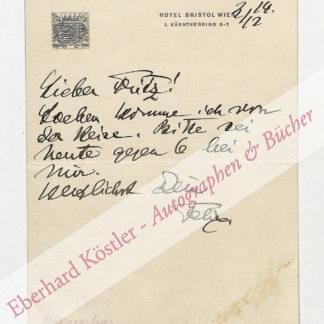 HOTEL BRISTOL WIEN
I. KÄRNTNERRING 5-7
Lieber Fritz!
Soeben komme ich von
der Reise. Bitte sei
heute gegen 6 bei
mir.
Herzlichst Dein
Felix
Eberhard Köstler - Autographen & Bücher